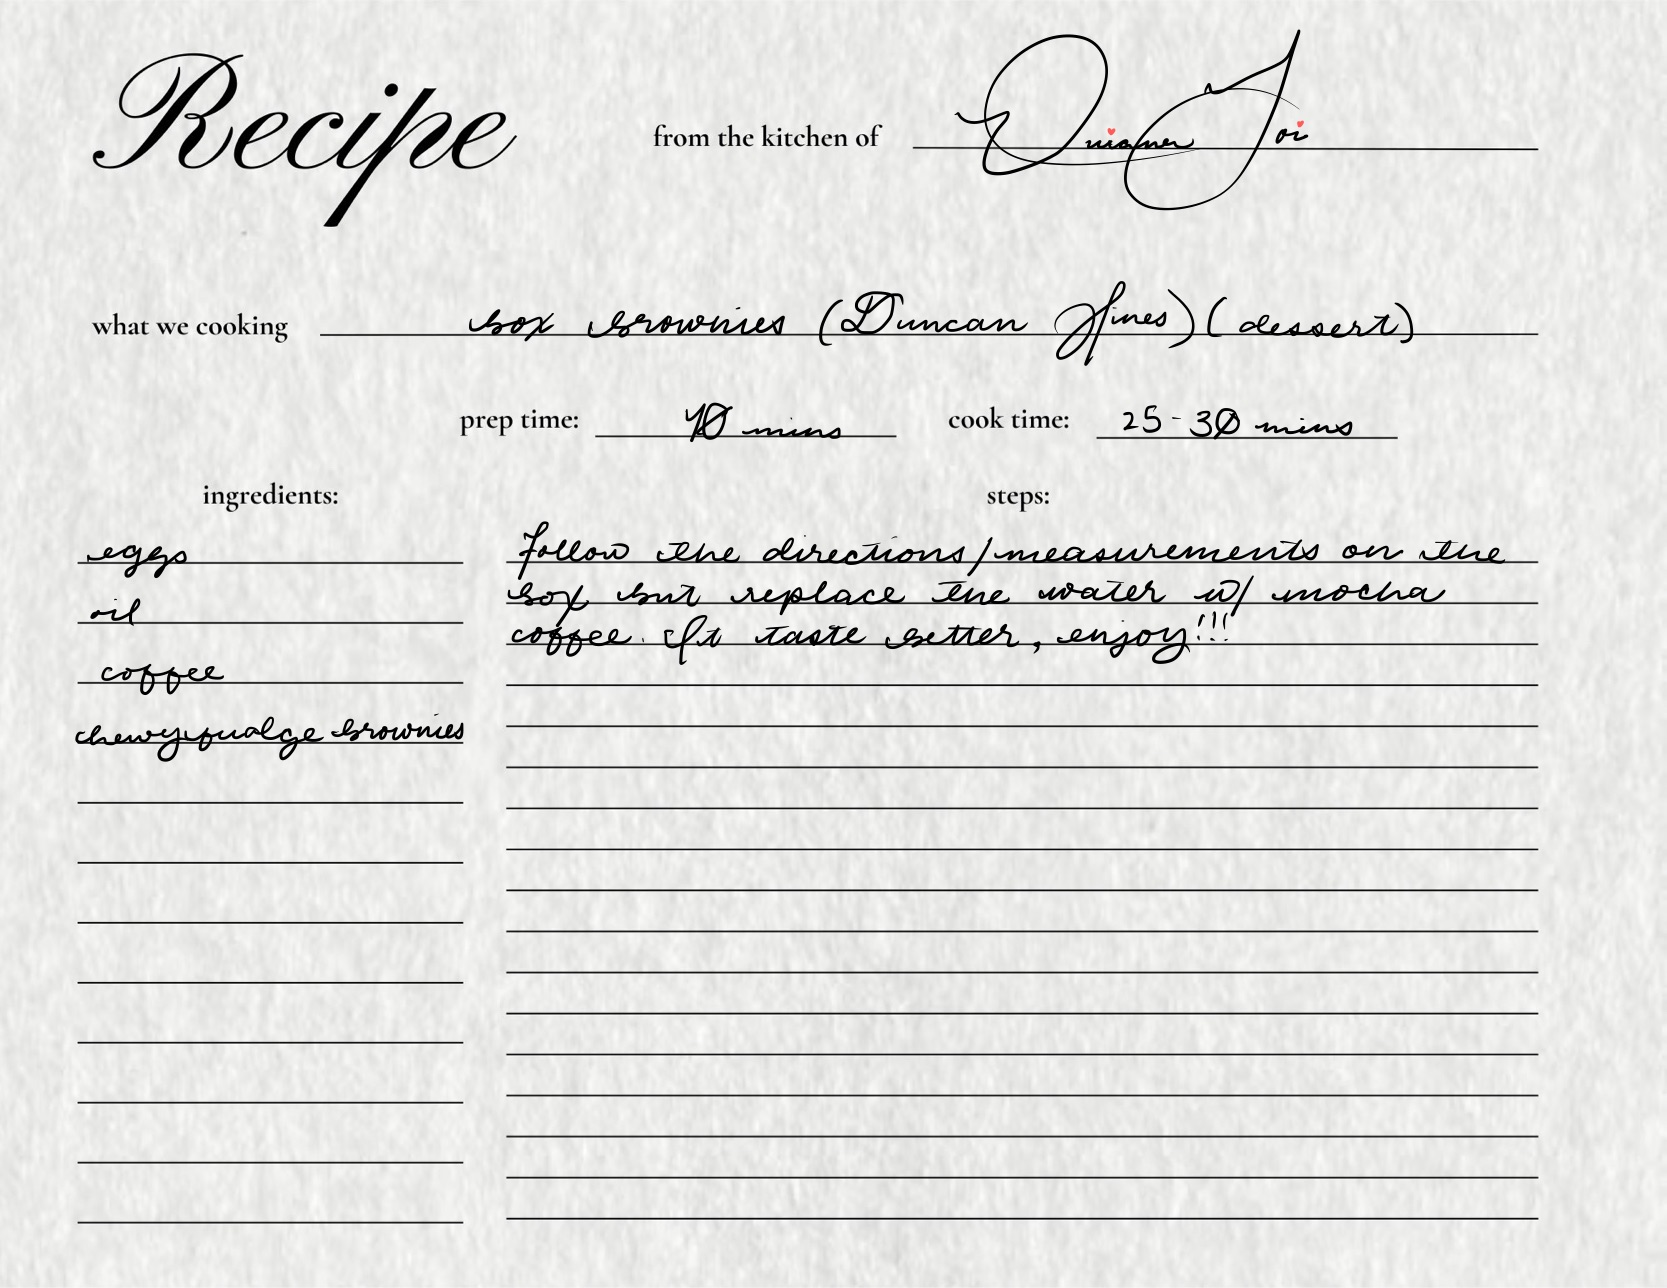 Recipe
from the kitchen of
what we cooking box brownies (Duncan Hines) (dessert)
prep time: 10 mins cook time: 25-30 mins
ingredients:
steps:
eggs
oil
coffee
chewy fudge brownies
follow the directions/measurements on the
box but replace the water w/ mocha
coffee. It taste better, enjoy!!!